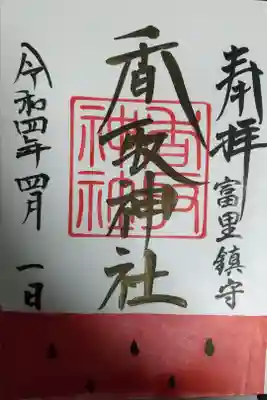 奉拝
富里鎮守
香取神社
令和四年四月一日